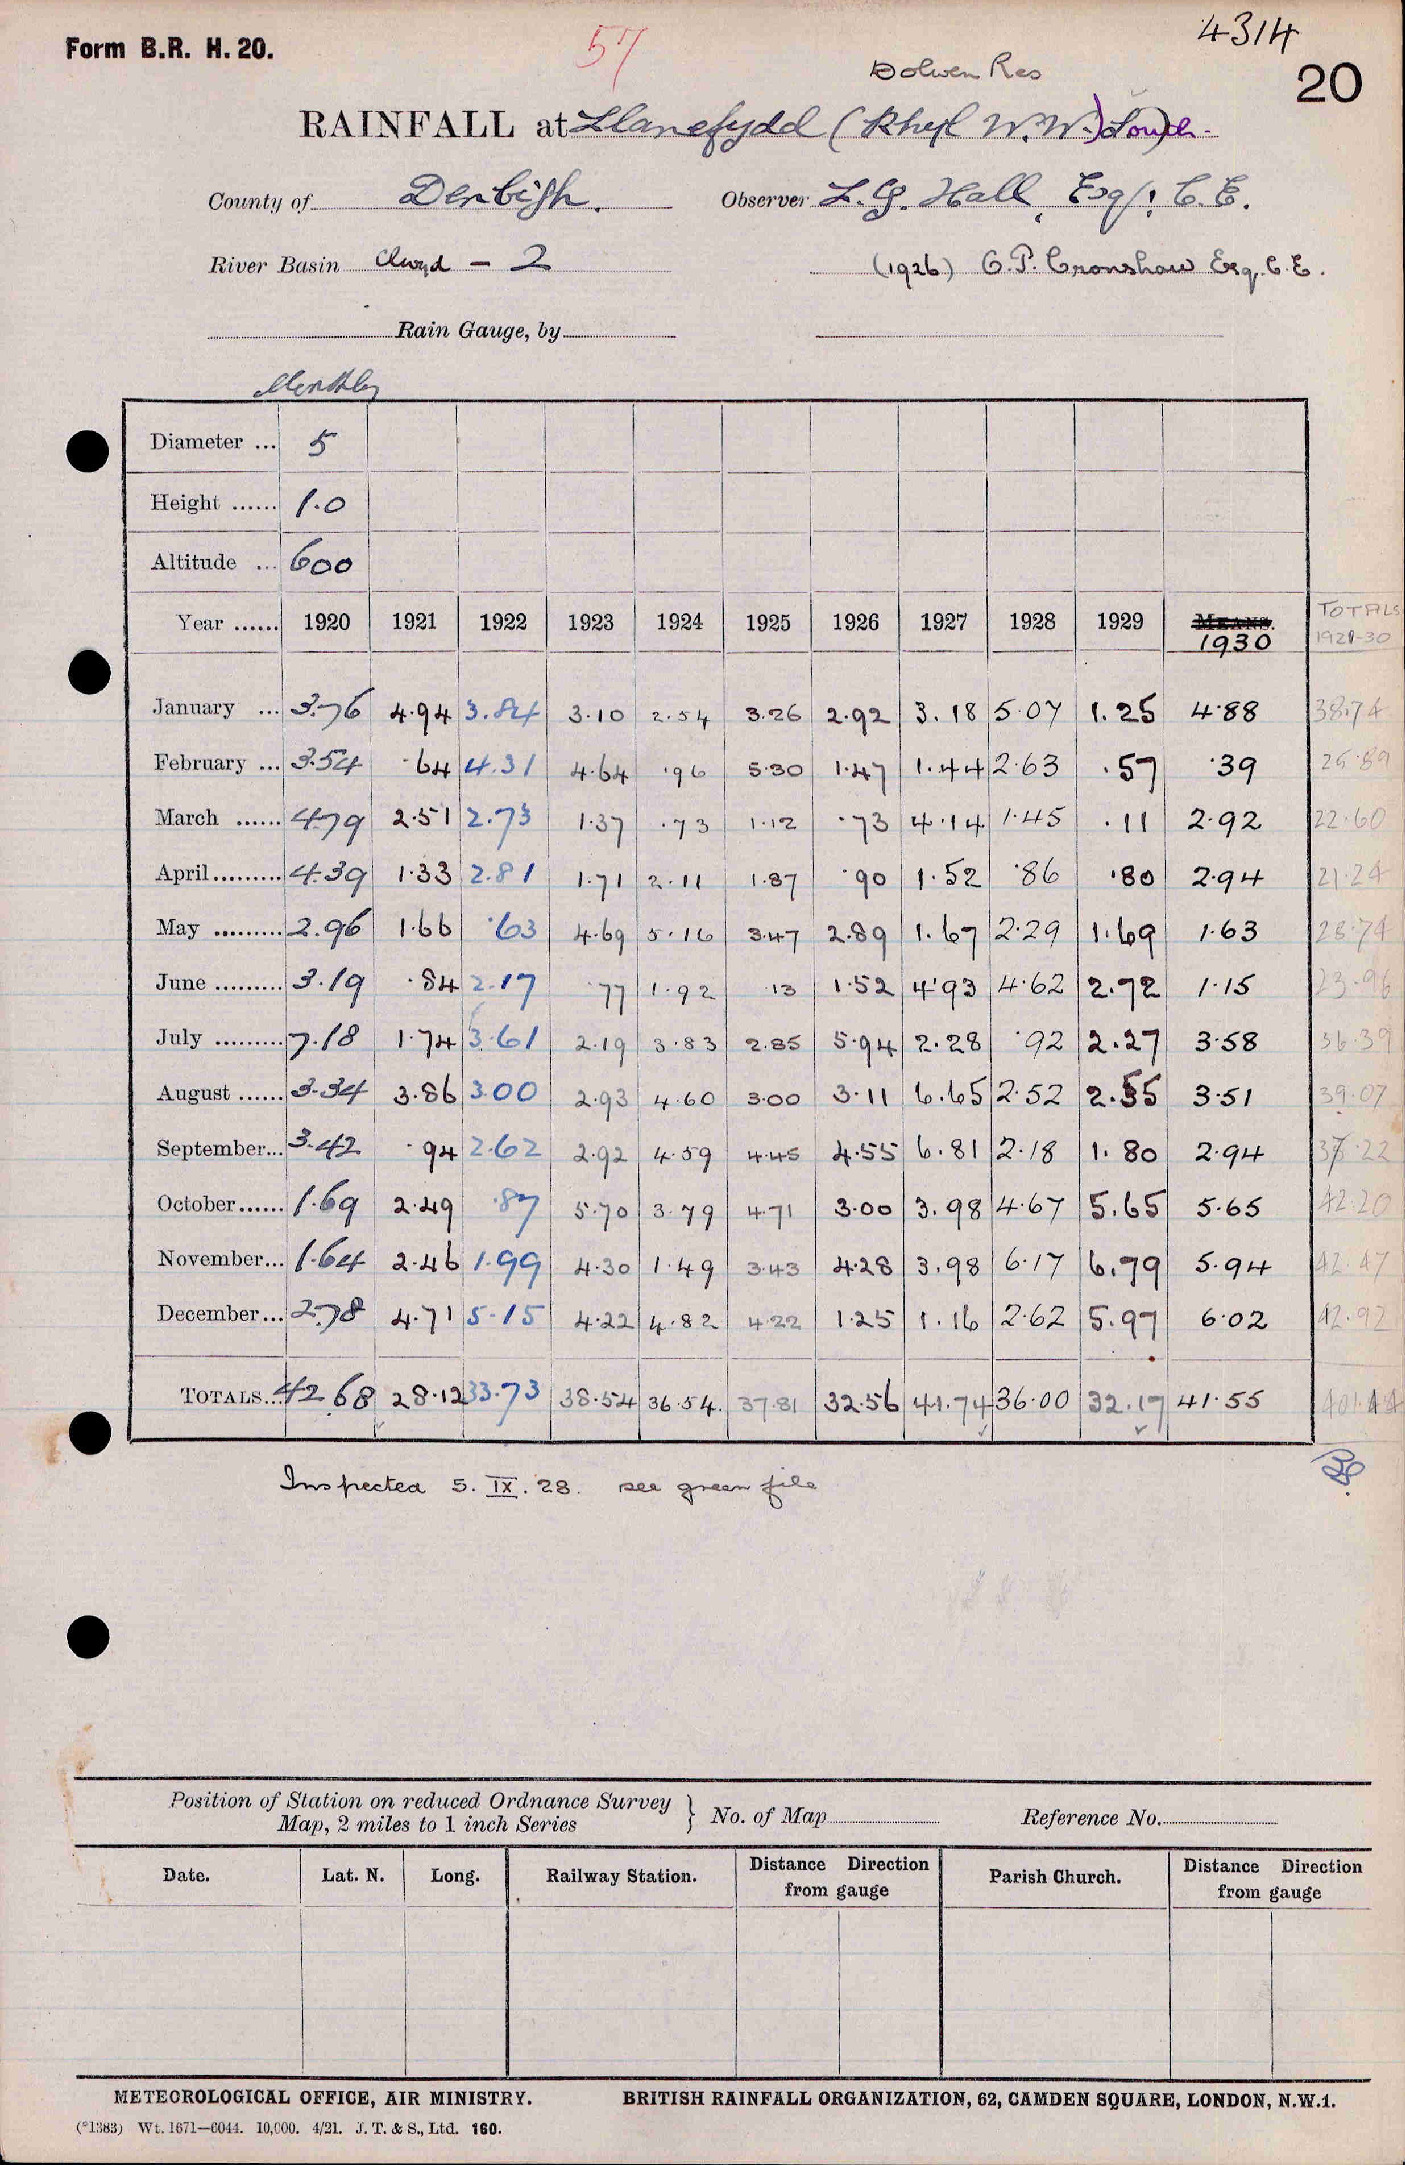 4314
Form B.R. H. 20.
57
Dolwen Res
20
RAINFALL at Llanefydd (Rhyl W.W.) South
County of Denbigh. Observer L. G. Hall, Esq., C.E.
River Basin Clwyd - 2 (1926) O.P. Cronshaw Esq. C.E.
Rain Gauge, by
Monthly
Diameter ... 5
Height ...... 1.0
Altitude ... 600
Year ...... 1920 1921 1922 1923 1924 1925 1926 1927 1928 1929 MEANS. 1930 TOTALS 1921-30
January ... 3.76 4.94 3.84 3.10 2.54 3.26 2.92 3.18 5.07 1.25 4.88
February ... 3.54 .64 4.31 4.64 .96 5.30 1.47 1.44 2.63 .57 .39
March ...... 4.79 2.51 2.73 1.37 .73 1.12 .73 4.14 1.45 .11 2.92 22.60
April ......... 4.39 1.33 2.81 1.71 2.11 1.87 .90 1.52 .86 .80 2.94 21.24
May ......... 2.96 1.66 .63 4.69 5.16 3.47 2.89 1.67 2.29 1.69 1.63
June ......... 3.19 .84 2.17 .77 1.92 .13 1.52 4.93 4.62 2.72 1.15 23.96
July ......... 7.18 1.74 3.61 2.19 3.83 2.85 5.94 2.28 .92 2.27 3.58
August ...... 3.34 3.86 3.00 2.93 4.60 3.00 3.11 6.65 2.52 2.55 3.51 39.07
September... 3.42 .94 2.62 2.92 4.59 4.45 4.55 6.81 2.18 1.80 2.94
October...... 1.69 2.49 .87 5.70 3.79 4.71 3.00 3.98 4.67 5.65 5.65 42.20
November... 1.64 2.46 1.99 4.30 1.49 3.43 4.28 3.98 6.17 6.79 5.94 42.47
December... 2.78 4.71 5.15 4.22 4.82 4.22 1.25 1.16 2.62 5.97 6.02 42.92
TOTALS... 42.68 28.12 33.73 38.54 36.54 37.81 32.56 41.74 36.00 32.17 41.55
Inspected 5. IX. 28. see green file
Position of Station on reduced Ordnance Survey
Map, 2 miles to 1 inch Series } No. of Map Reference No.
Date. Lat. N. Long. Railway Station. Distance Direction from gauge Parish Church. Distance Direction from gauge
METEOROLOGICAL OFFICE, AIR MINISTRY. BRITISH RAINFALL ORGANIZATION, 62, CAMDEN SQUARE, LONDON, N.W.1.
(*1383) Wt. 1671—6044. 10,000. 4/21. J. T. & S., Ltd. 160.